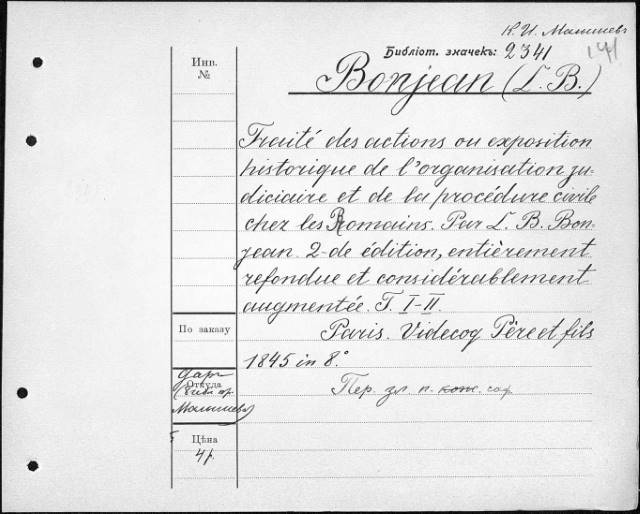 К. И. Малышевъ
Библіот. значекъ: 2341
141
Инв.
№
Bonjean (L. B.)
Traité des actions ou exposition
historique de l'organisation ju-
diciaire et de la procédure civile
chez les Romains. Par L. B. Bon-
jean. 2-de édition, entièrement
refondue et considérablement
augmentée. T. I-II.
По заказу
Paris. Videcoq Père et fils
1845 in 8.°
даръ
Откуда
Малышева
Пер. зл. п. кож. саф.
Цѣна
4 р.